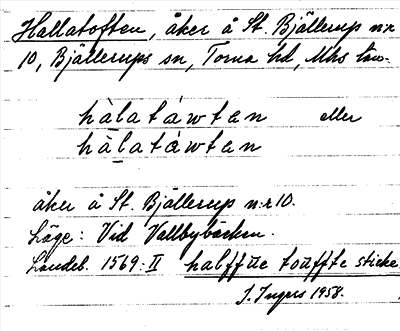 Hallatoften, åker å St. Bjällerup n:r
10, Bjällerups sn, Torna hd, Mhs län.
hàlatáwtan eller
hàlatàwtan
åker å St. Bjällerup n:r 10.
Läge: Vid Vallbybäcken.
Landeb. 1569: II halffüe touffte sticke
J. Ingers 1958.